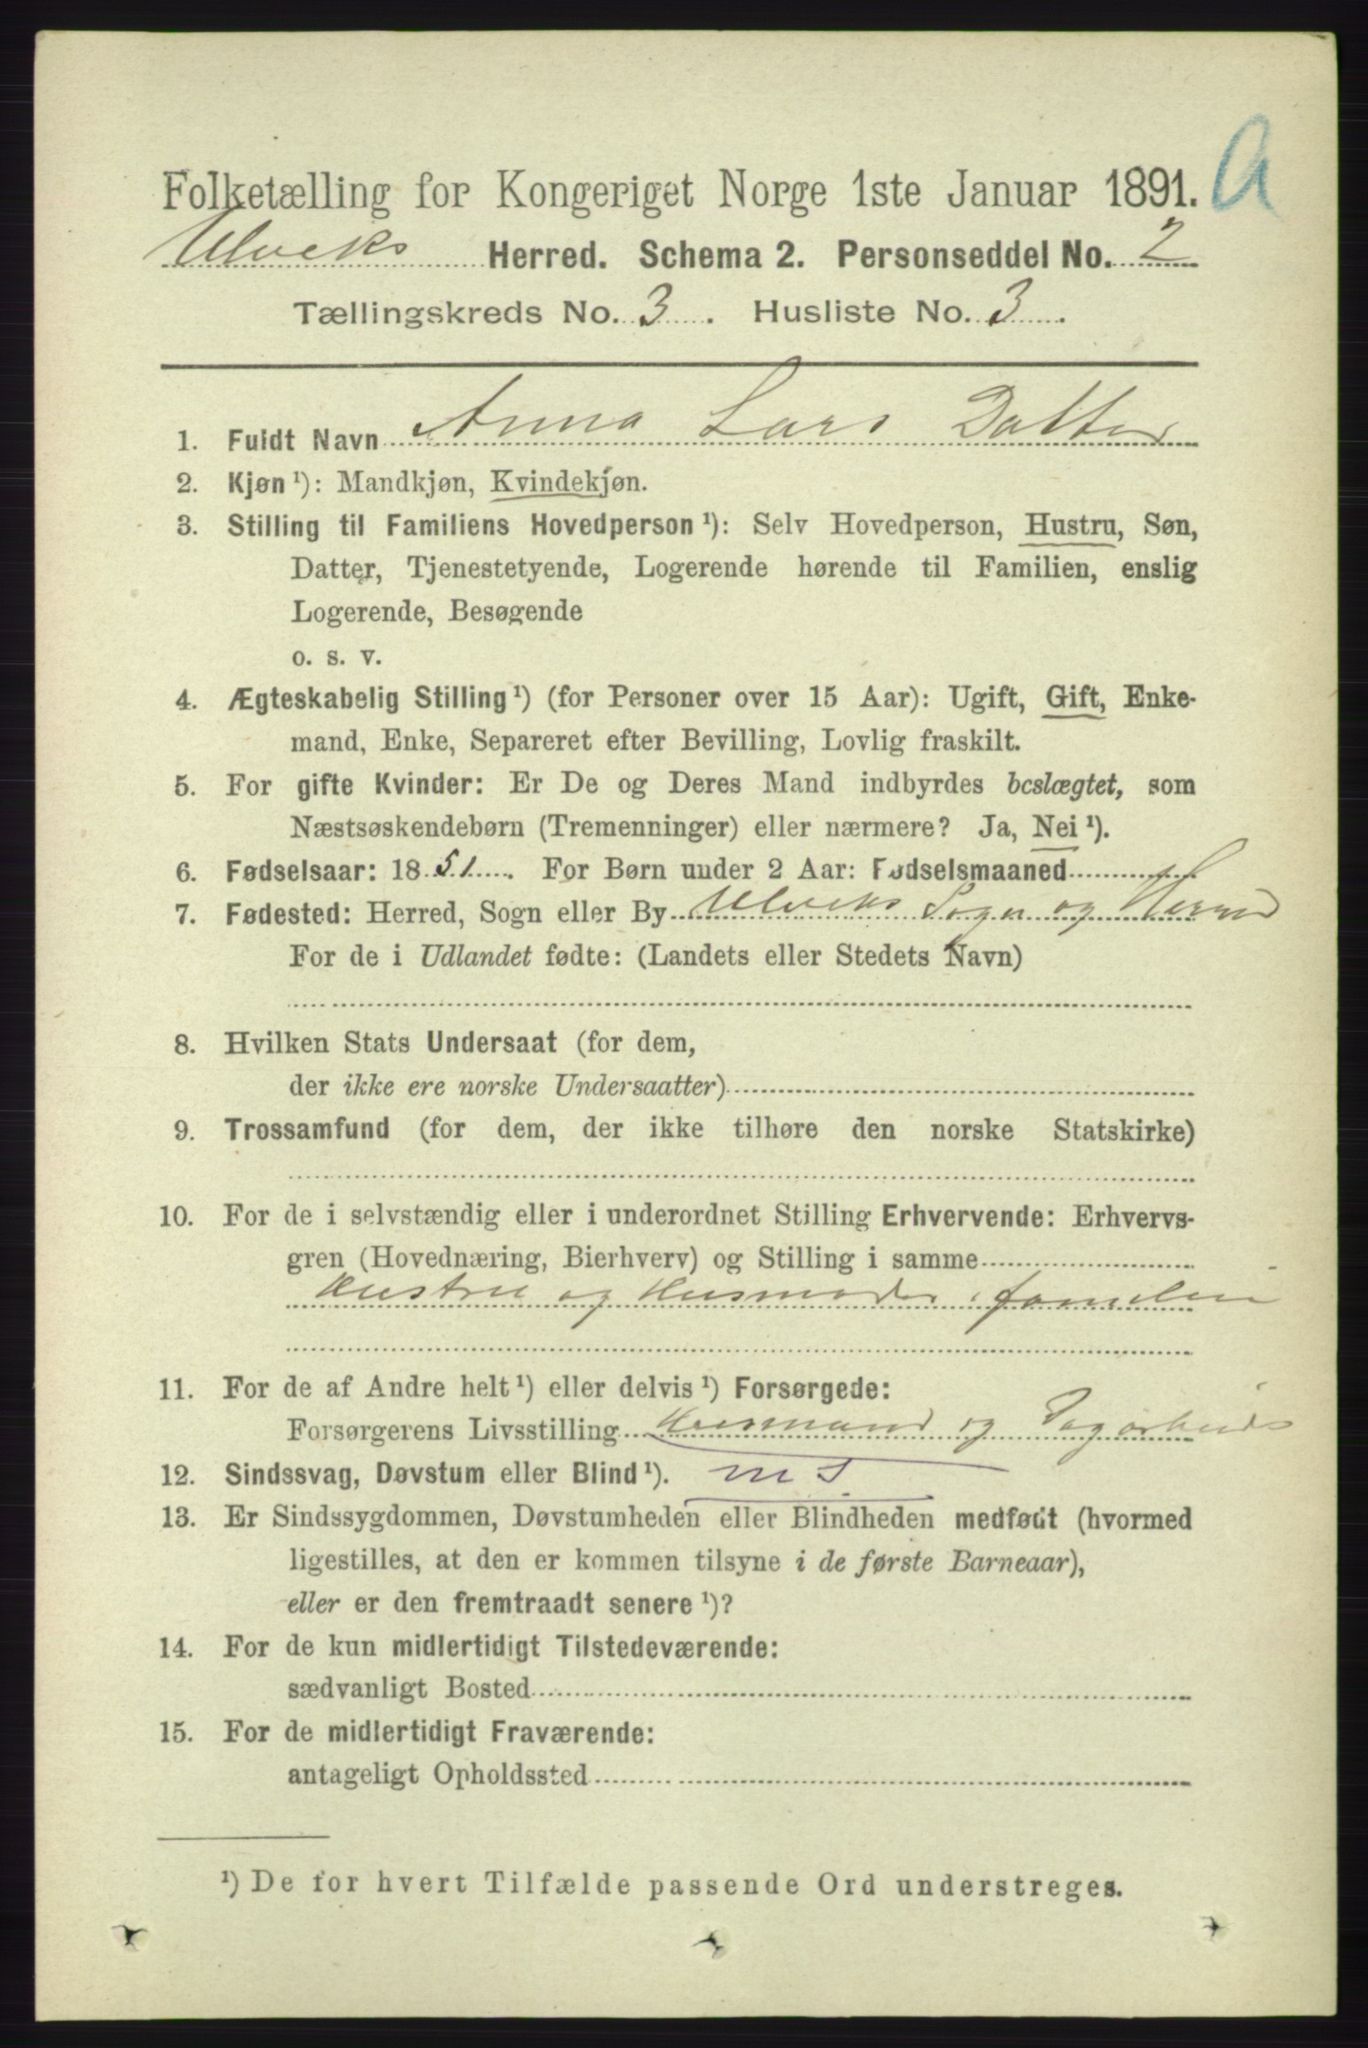 A
Folketælling for Kongeriget Norge 1ste Januar 1891.
Ulviks Herred. Schema 2. Personseddel No. 2
Tællingskreds No. 3. Husliste No. 3.
1. Fuldt Navn Anna Lars Datter
2. Kjøn ¹): Mandkjøn, Kvindekjøn.
3. Stilling til Familiens Hovedperson ¹): Selv Hovedperson, Hustru, Søn,
Datter, Tjenestetyende, Logerende hørende til Familien, enslig
Logerende, Besøgende
o. s. v.
4. Ægteskabelig Stilling ¹) (for Personer over 15 Aar): Ugift, Gift, Enke-
mand, Enke, Separeret efter Bevilling, Lovlig fraskilt.
5. For gifte Kvinder: Er De og Deres Mand indbyrdes beslægtet, som
Næstsøskendebørn (Tremenninger) eller nærmere? Ja, Nei ¹).
6. Fødselsaar: 1851. For Børn under 2 Aar: Fødselsmaaned
7. Fødested: Herred, Sogn eller By Ulviks Sogn og Herred
For de i Udlandet fødte: (Landets eller Stedets Navn)
8. Hvilken Stats Undersaat (for dem,
der ikke ere norske Undersaatter)
9. Trossamfund (for dem, der ikke tilhøre den norske Statskirke)
10. For de i selvstændig eller i underordnet Stilling Erhvervende: Erhvervs-
gren (Hovednæring, Bierhverv) og Stilling i samme
Hustru og Husmoder i familien
11. For de af Andre helt ¹) eller delvis ¹) Forsørgede:
Forsørgerens Livsstilling Husmand og Dagarbeider
12. Sindssvag, Døvstum eller Blind ¹). m S
13. Er Sindssygdommen, Døvstumheden eller Blindheden medfødt (hvormed
ligestilles, at den er kommen tilsyne i de første Barneaar),
eller er den fremtraadt senere ¹)?
14. For de kun midlertidigt Tilstedeværende:
sædvanligt Bosted
15. For de midlertidigt Fraværende:
antageligt Opholdssted
¹) De for hvert Tilfælde passende Ord understreges.